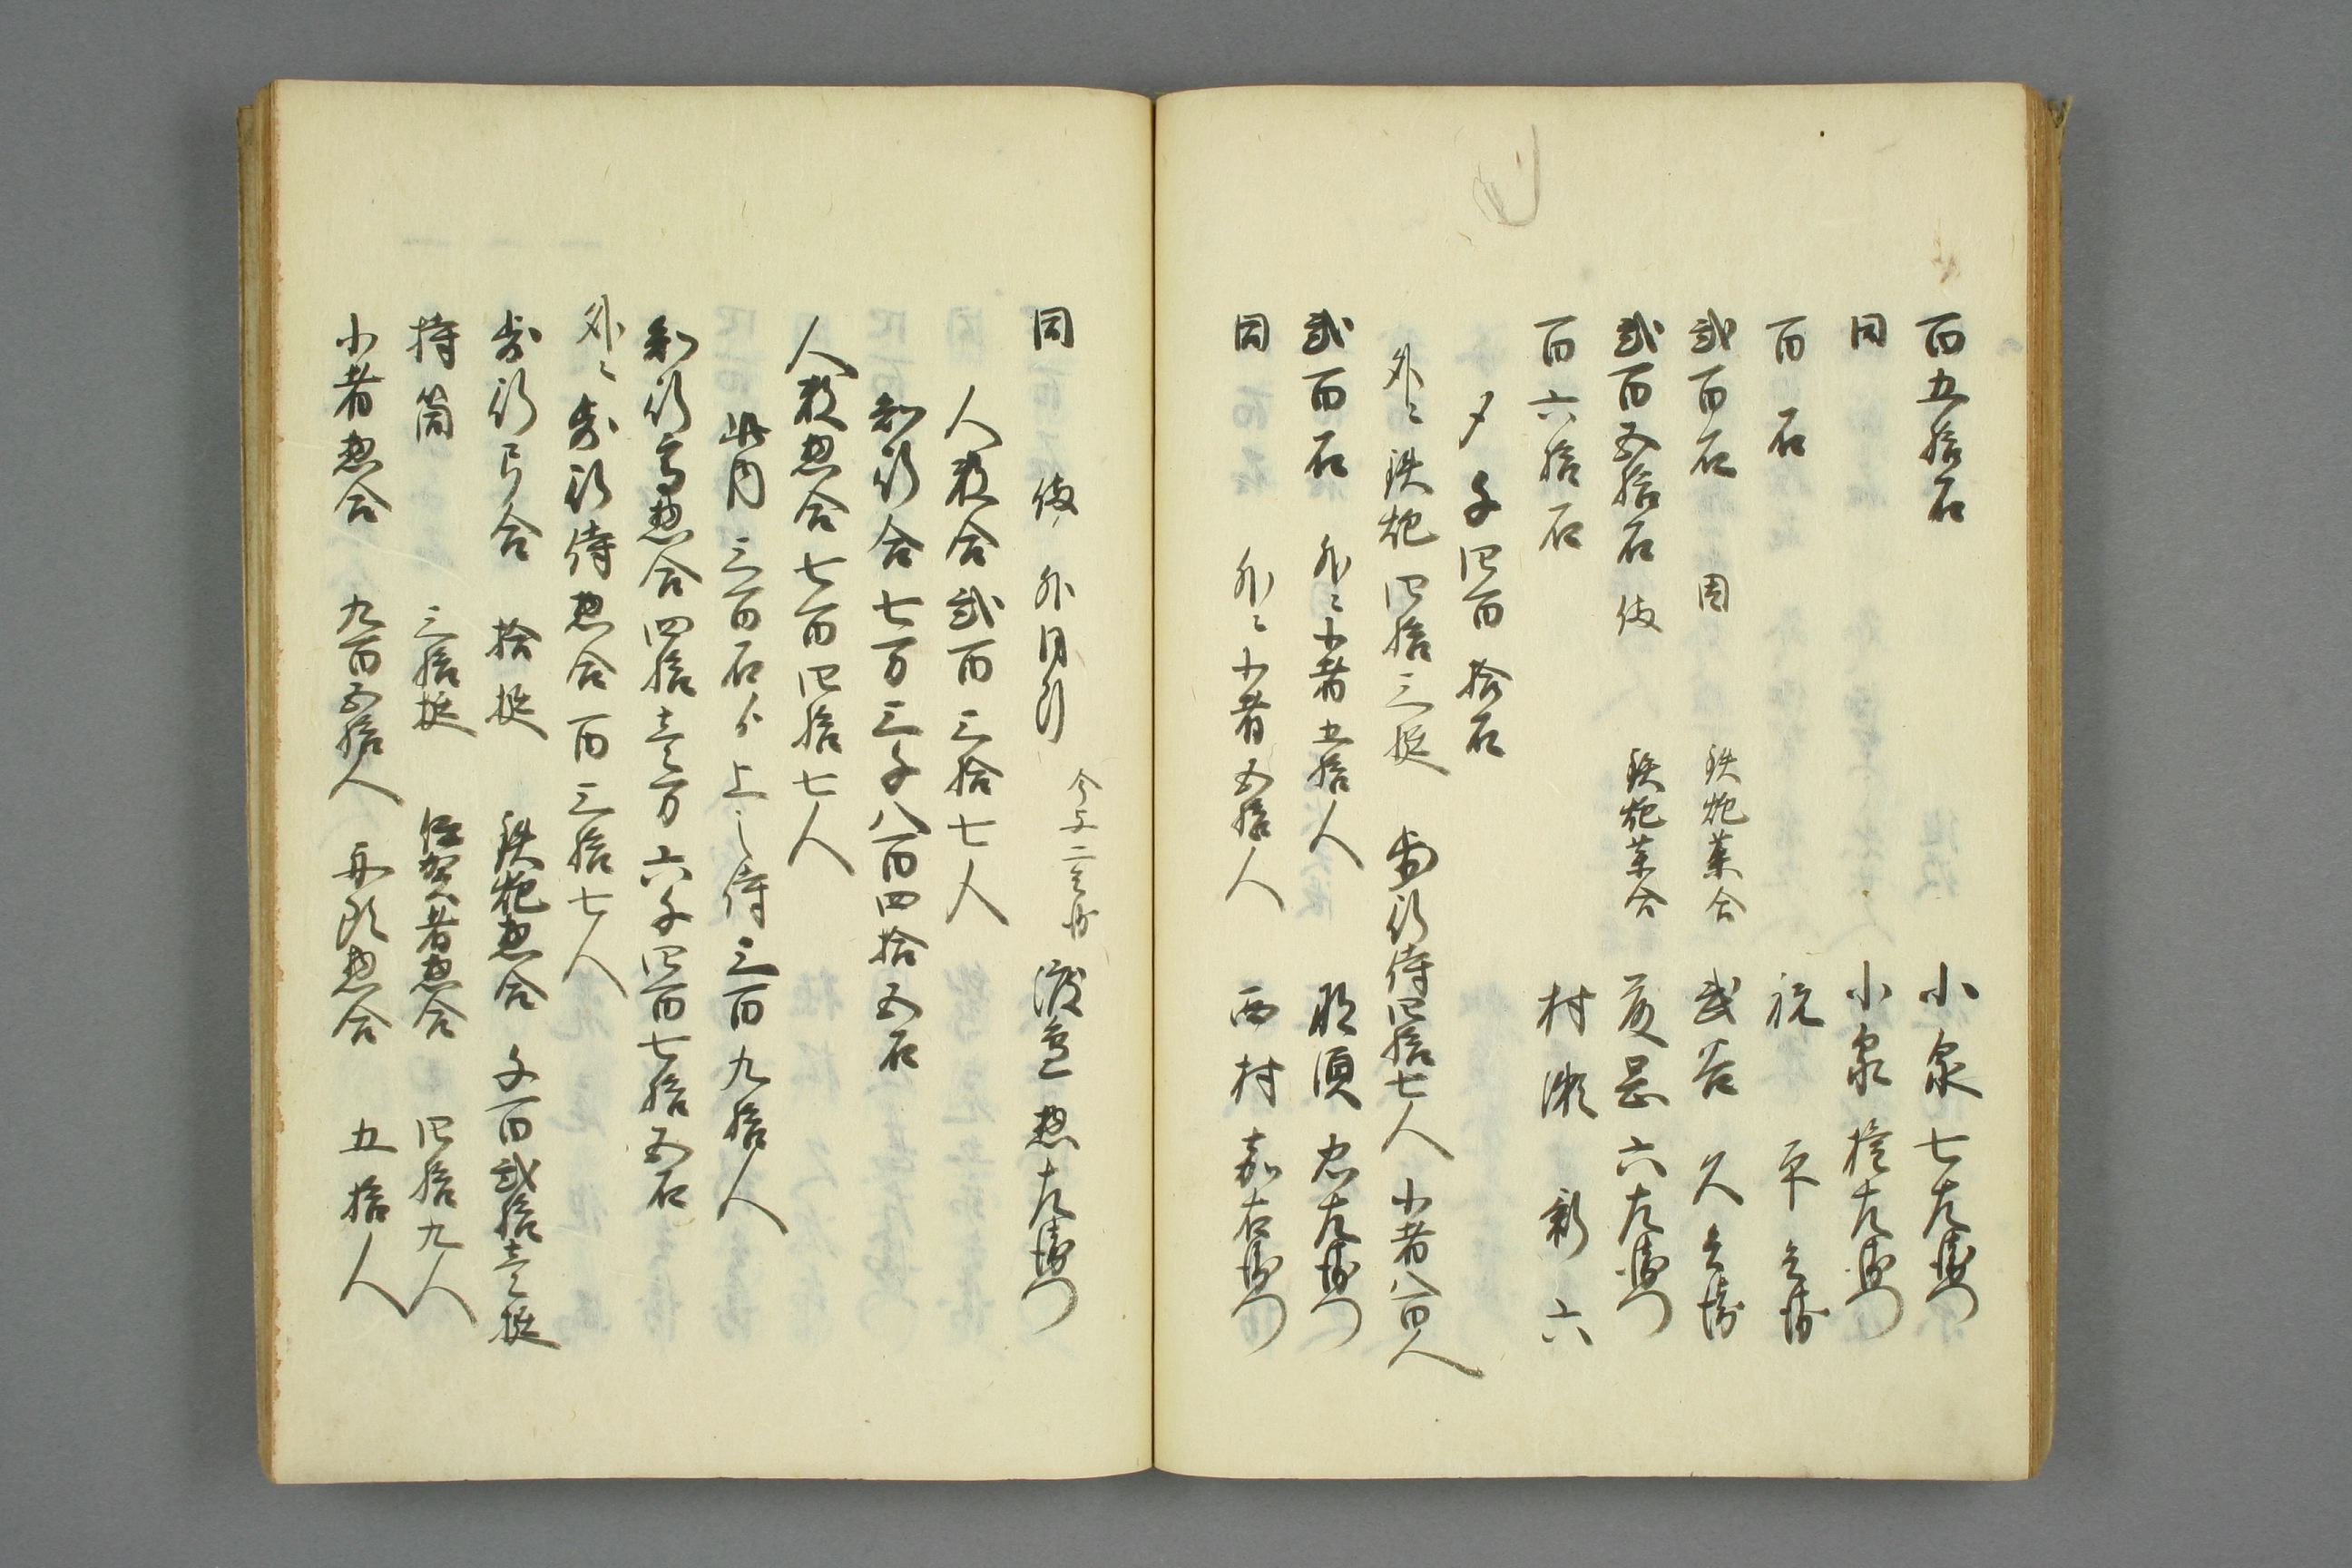 百五拾石 小泉七左衛門
同 小泉権左衛門
百石 祝平兵衛
弐百石 同 鉄炮薬合 武谷久兵衛
弐百五拾石 後 鉄炮薬合 岡六左衛門
百六拾石 村瀬新六
〆千四百拾石
外ニ鉄炮四拾三挺 歩行侍四拾七人 小者八百人
弐百石 外ニ小者五拾人 那須忠左衛門
同 外ニ小者五拾人 西村嘉右衛門
同 後 渡邉惣左衛門
人数合弐百三拾七人
知行合七万三千八百四拾五石
人数惣合七百四拾七人
此内三百石ゟ上之侍三百九拾人
知行高惣合四拾壱万六千四百七拾五石
外ニ歩行侍惣合百三拾七人
歩行弓合 拾挺 鉄炮惣合 千百弐拾壱挺
持筒 三拾挺 伊賀之者惣合 四拾九人
小者惣合 九百五拾人 惣合 五拾人